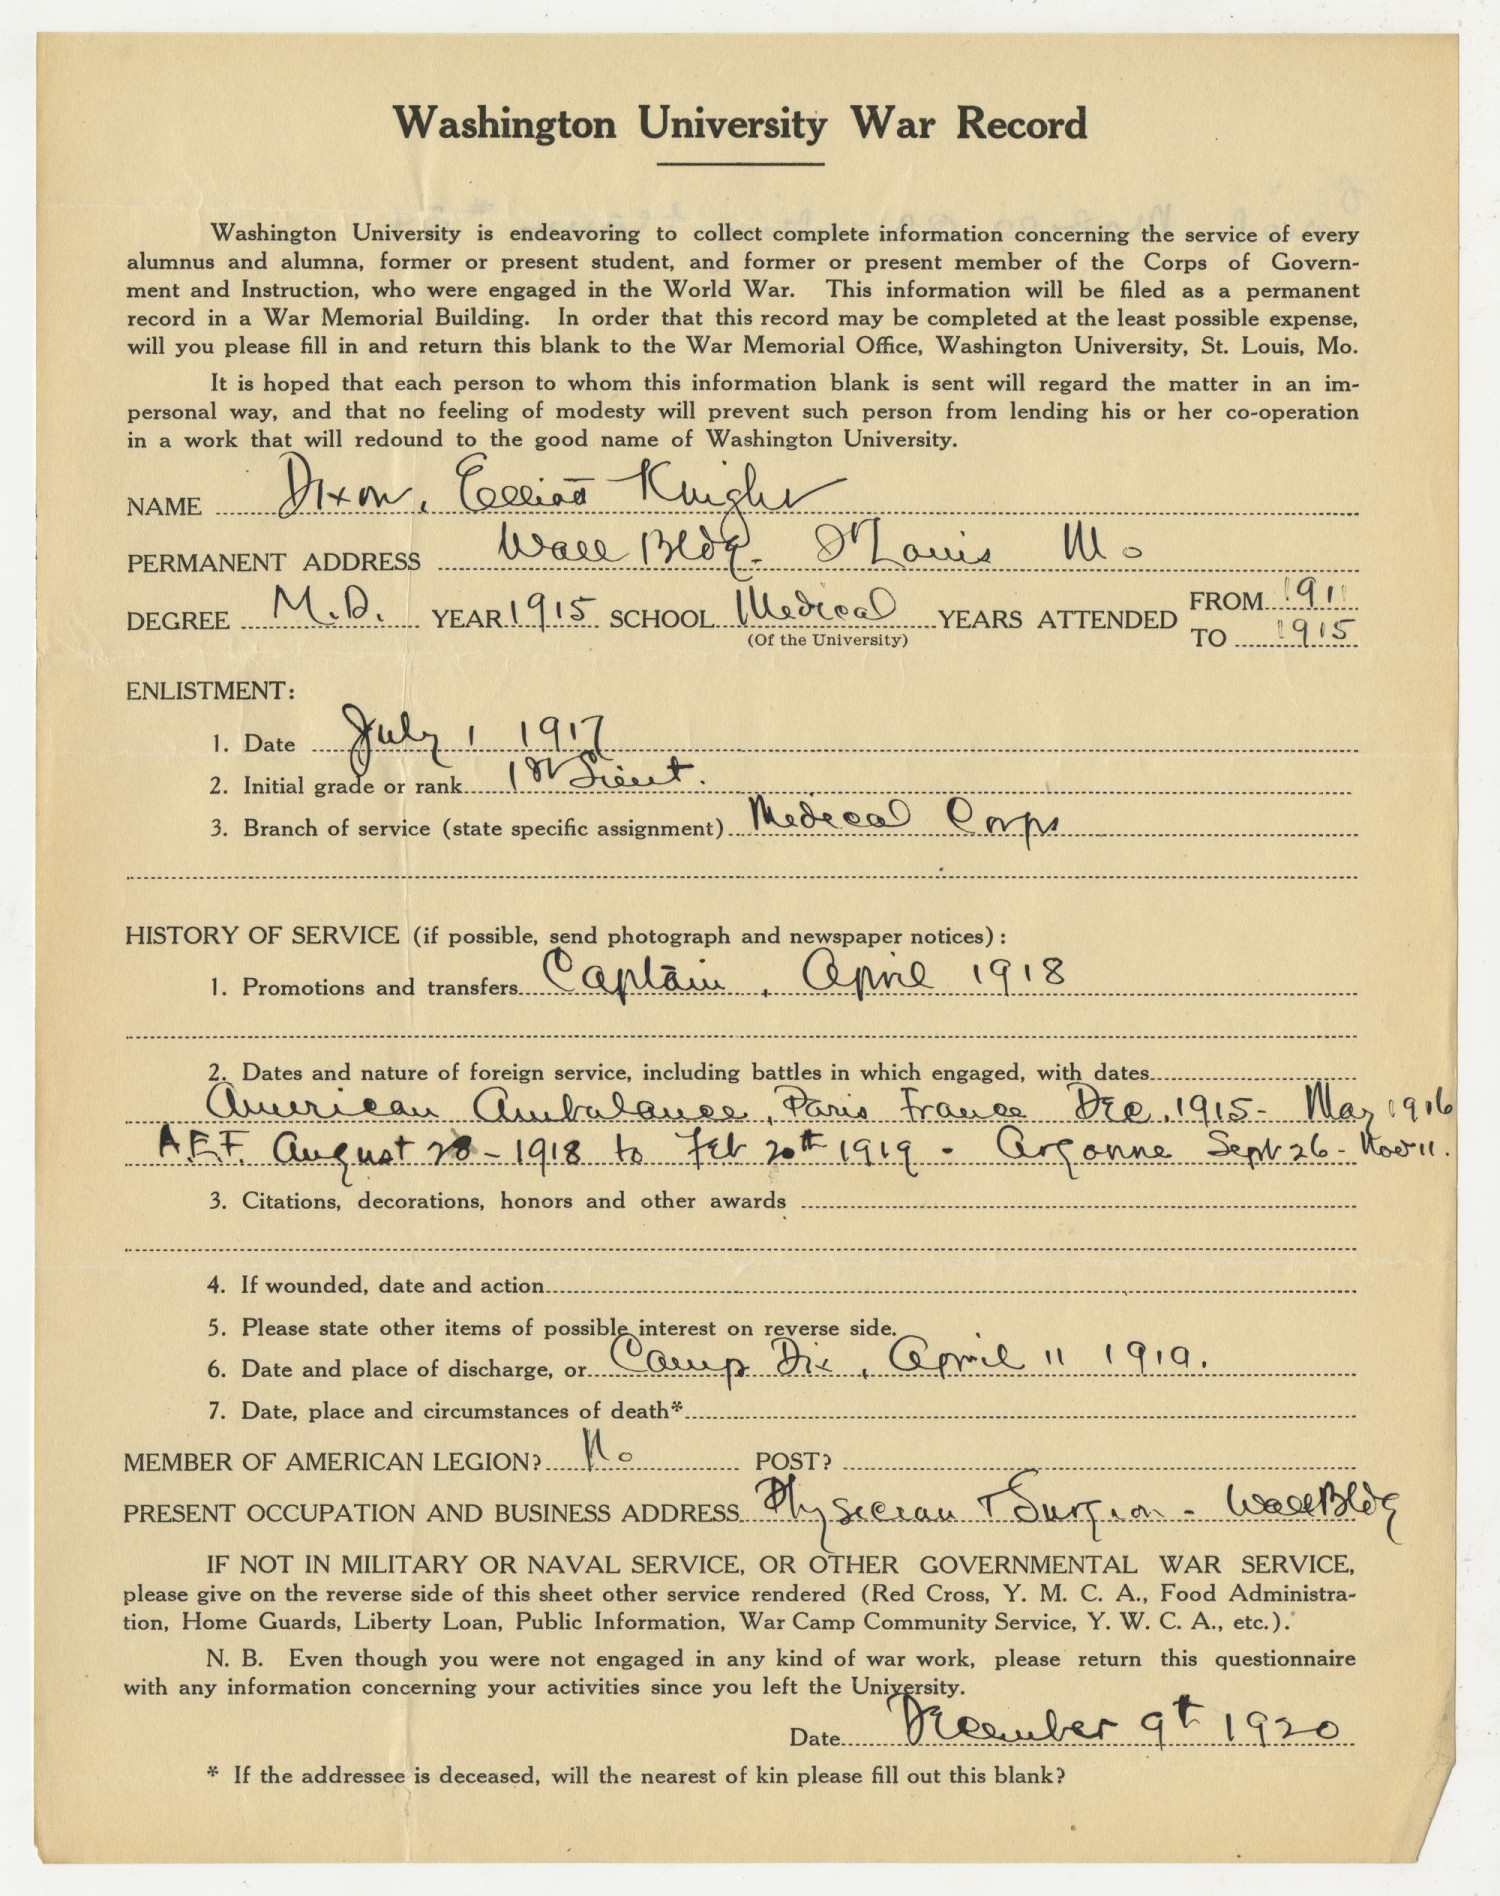 Washington University War Record
Washington University is endeavoring to collect complete information concerning the service of every
alumnus and alumna, former or present student, and former or present member of the Corps of Govern-
ment and Instruction, who were engaged in the World War. This information will be filed as a permanent
record in a War Memorial Building. In order that this record may be completed at the least possible expense,
will you please fill in and return this blank to the War Memorial Office, Washington University, St. Louis, Mo.
It is hoped that each person to whom this information blank is sent will regard the matter in an im-
personal way, and that no feeling of modesty will prevent such person from lending his or her co-operation
in a work that will redound to the good name of Washington University.
NAME Dixon, Elliott Knight
PERMANENT ADDRESS Wall Bldg. St Louis Mo
DEGREE M.D. YEAR 1915 SCHOOL Medical YEARS ATTENDED FROM 1911
(Of the University) TO 1915
ENLISTMENT:
1. Date July 1 1917
2. Initial grade or rank 1st Lieut.
3. Branch of service (state specific assignment) Medical Corps
HISTORY OF SERVICE (if possible, send photograph and newspaper notices):
1. Promotions and transfers Captain, April 1918
2. Dates and nature of foreign service, including battles in which engaged, with dates
American Ambulance, Paris France Dec. 1915 - May 1916
A.E.F. August 28 - 1918 to Feb 20th 1919 - Argonne Sept 26 - Nov 11.
3. Citations, decorations, honors and other awards
4. If wounded, date and action
5. Please state other items of possible interest on reverse side.
6. Date and place of discharge, or Camp Dix, April 11 1919.
7. Date, place and circumstances of death*
MEMBER OF AMERICAN LEGION? No POST?
PRESENT OCCUPATION AND BUSINESS ADDRESS Physician + Surgeon - Wall Bldg
IF NOT IN MILITARY OR NAVAL SERVICE, OR OTHER GOVERNMENTAL WAR SERVICE,
please give on the reverse side of this sheet other service rendered (Red Cross, Y. M. C. A., Food Administra-
tion, Home Guards, Liberty Loan, Public Information, War Camp Community Service, Y. W. C. A., etc.).
N. B. Even though you were not engaged in any kind of war work, please return this questionnaire
with any information concerning your activities since you left the University.
Date December 9th 1920
* If the addressee is deceased, will the nearest of kin please fill out this blank?